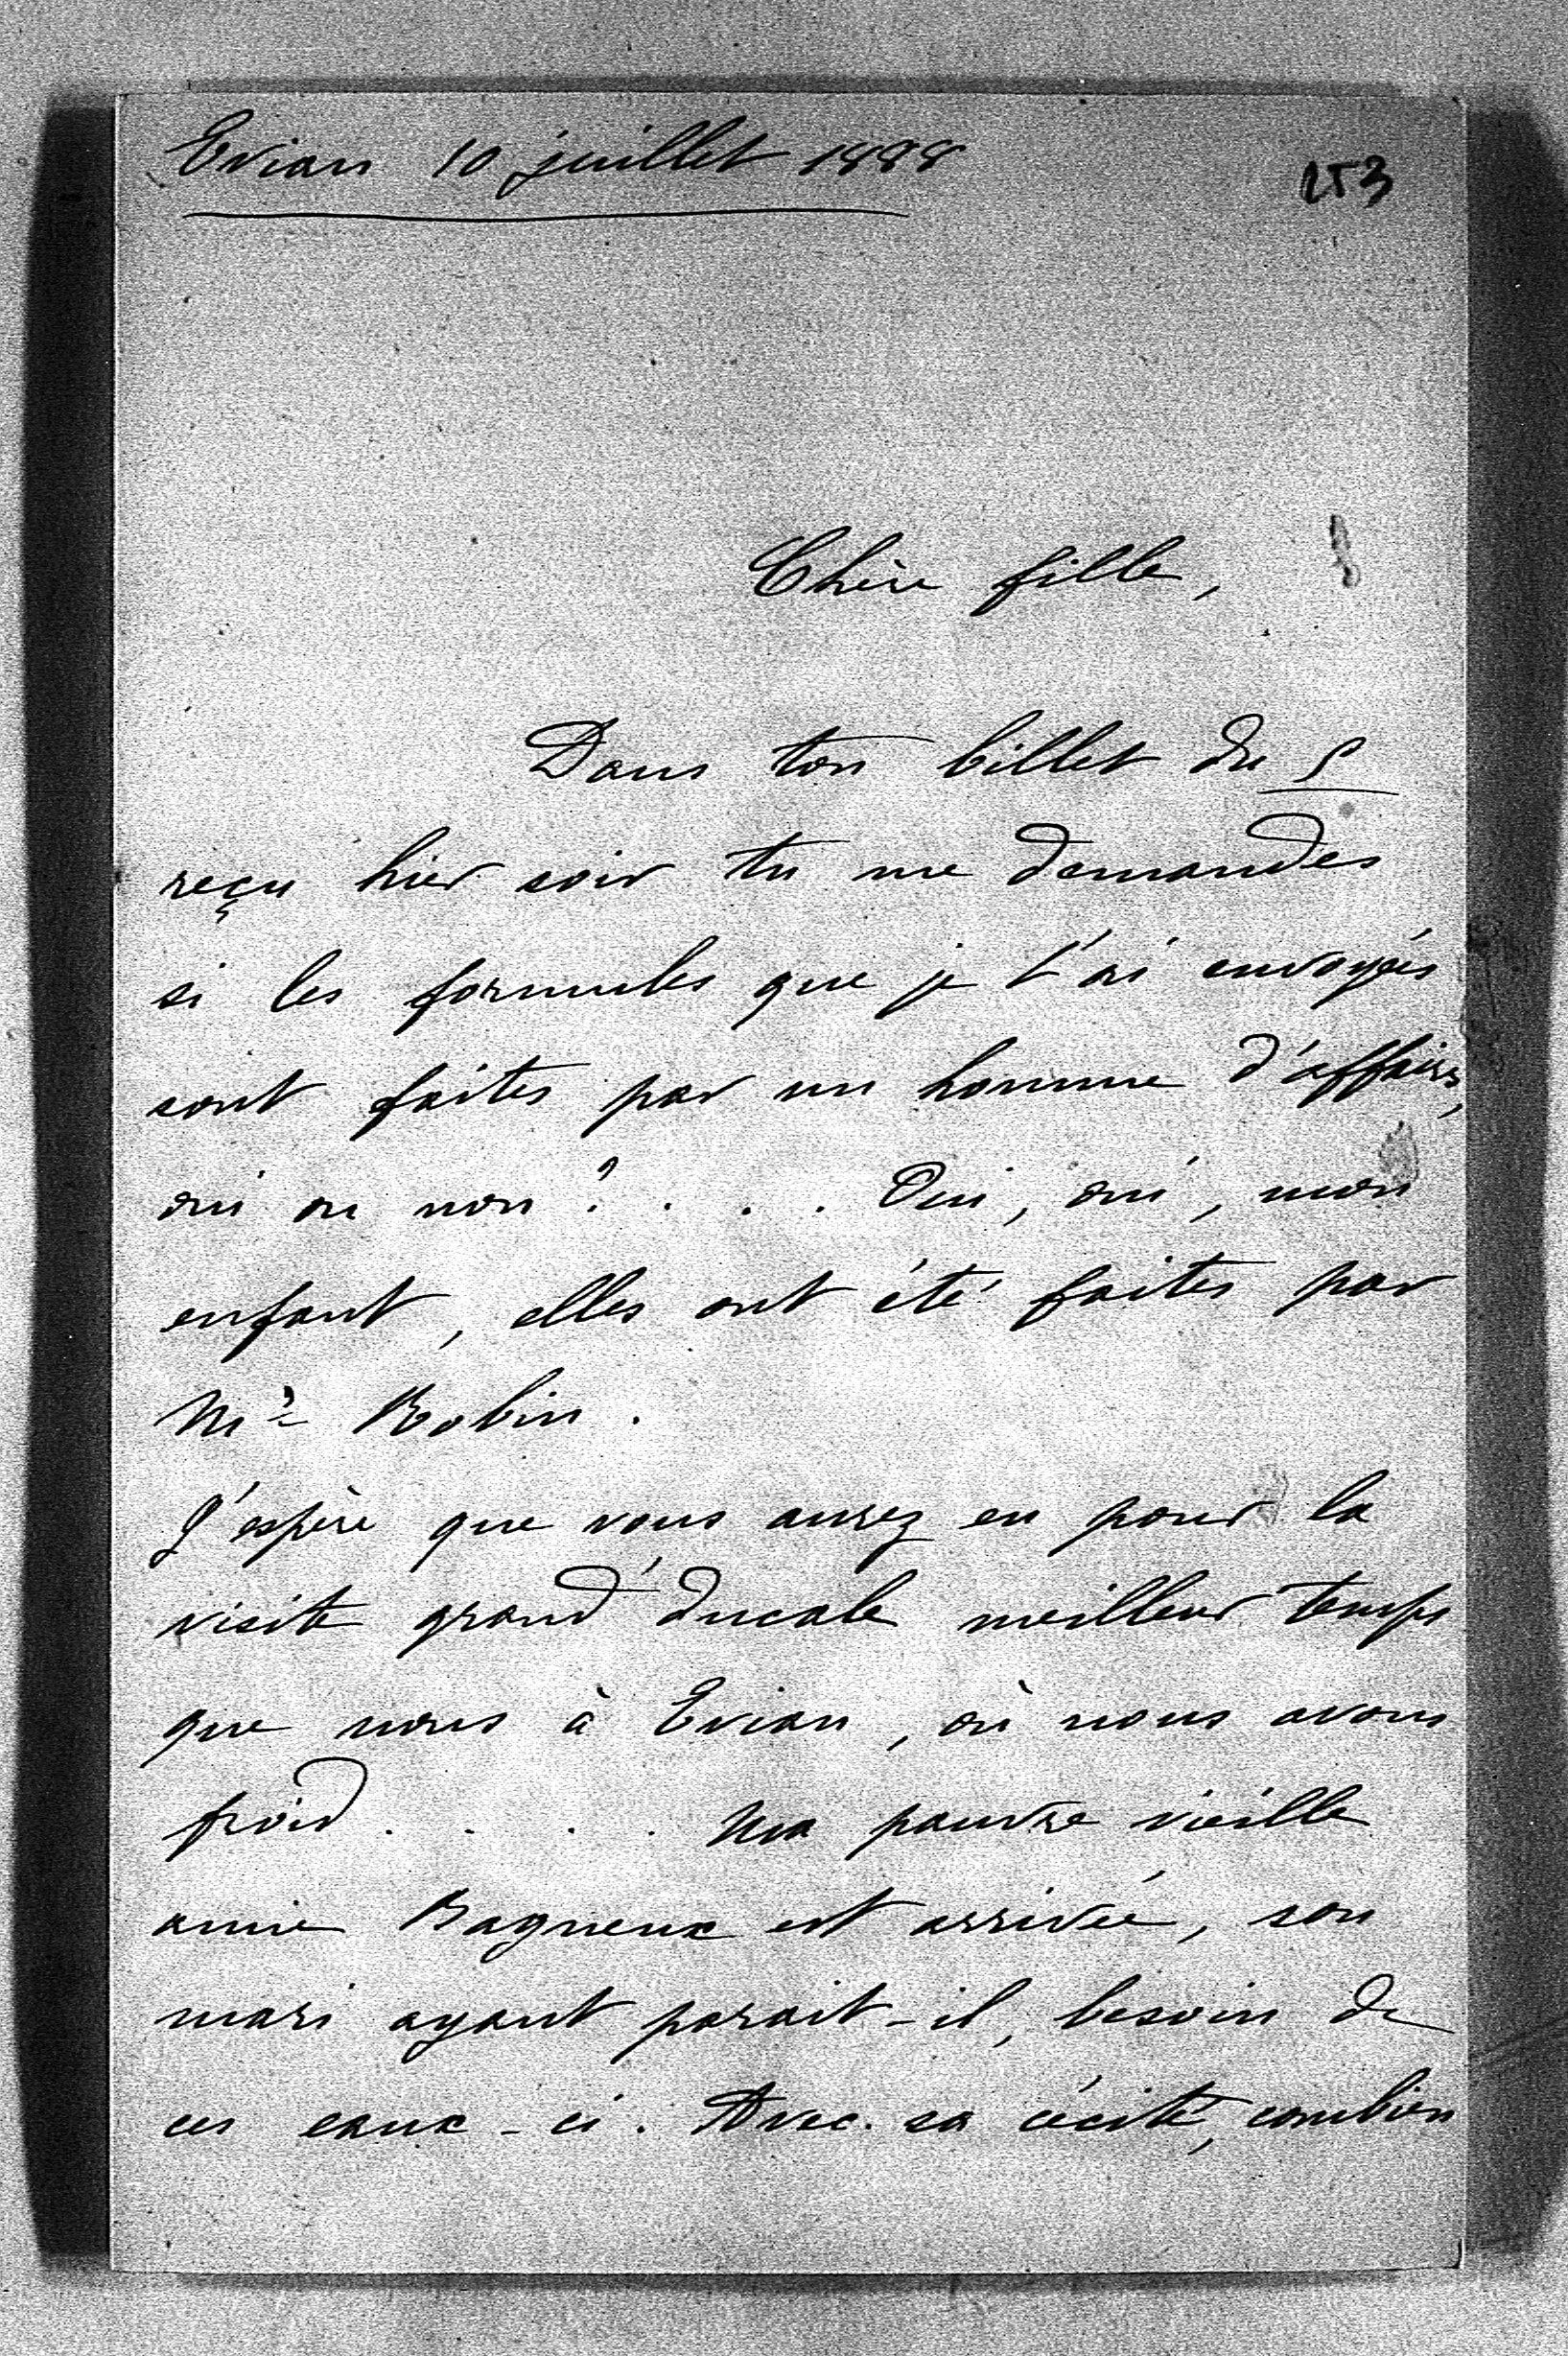 Evian 10 juillet 1888
253
Chère fille,
Dans ton billet du 5
reçu hier soir tu me demandes
si les formules que je t'ai envoyées
sont faites par un homme d'affaires,
oui ou non ? . . . Oui, oui, mon
enfant, elles ont été faites par
Mr Robin.
J'espère que vous aurez eu pour la
visite grand'ducale meilleur temps
que nous à Evian, où nous avons
froid . . . . Ma pauvre vieille
amie Bagneux est arrivée, son
mari ayant parait-il, besoin de
ces eaux-ci. Avec sa cécité, combien